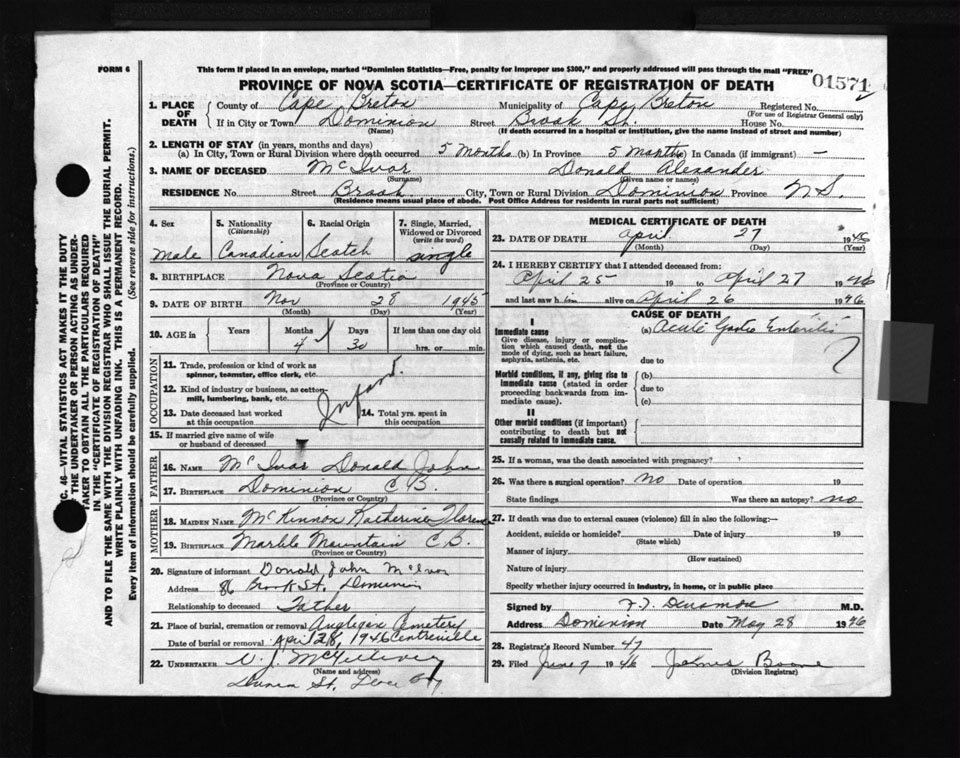 FORM 6
This form if placed in an envelope, marked "Dominion Statistics—Free, penalty for improper use $300," and properly addressed will pass through the mail "FREE"
PROVINCE OF NOVA SCOTIA—CERTIFICATE OF REGISTRATION OF DEATH
01571
1. PLACE OF DEATH County of Cape Breton Municipality of Cape Breton Registered No.
(For use of Registrar General only)
If in City or Town Dominion Street Brook St. House No.
(Name) (If death occurred in a hospital or institution, give the name instead of street and number)
2. LENGTH OF STAY (in years, months and days)
(a) In City, Town or Rural Division where death occurred 5 months (b) In Province 5 months (c) In Canada (if immigrant) —
3. NAME OF DECEASED McIvor Donald Alexander
(Surname) (Given name or names)
RESIDENCE No. Street Brook City, Town or Rural Division Dominion Province N.S.
(Residence means usual place of abode. Post Office Address for residents in rural parts not sufficient)
4. Sex 5. Nationality (Citizenship) 6. Racial Origin 7. Single, Married, Widowed or Divorced (write the word)
Male Canadian Scotch single
8. BIRTHPLACE Nova Scotia
(Province or Country)
9. DATE OF BIRTH Nov 28 1945
(Month) (Day) (Year)
10. AGE in Years Months Days If less than one day old
4 30 hrs. or min.
OCCUPATION
11. Trade, profession or kind of work as spinner, teamster, office clerk, etc.
12. Kind of industry or business, as cotton-mill, lumbering, bank, etc.
Infant.
13. Date deceased last worked at this occupation 14. Total yrs. spent in this occupation
15. If married give name of wife or husband of deceased
FATHER
16. NAME McIvor Donald John
17. BIRTHPLACE Dominion C B.
(Province or Country)
MOTHER
18. MAIDEN NAME McKinnon Katherine Florence
19. BIRTHPLACE Marble Mountain C.B.
(Province or Country)
20. Signature of informant Donald John McIvor
Address 86 Brook St. Dominion
Relationship to deceased Father
21. Place of burial, cremation or removal Anglican Cemetery
Date of burial or removal April 28, 1946 Centreville
22. UNDERTAKER
(Name and address)
MEDICAL CERTIFICATE OF DEATH
23. DATE OF DEATH April 27 1946
(Month) (Day) (Year)
24. I HEREBY CERTIFY that I attended deceased from:
April 25 19 to April 27 1946
and last saw h im alive on April 26 1946
CAUSE OF DEATH
I
Immediate cause (a) Acute Gastro Enteritis
Give disease, injury or complication which caused death, not the mode of dying, such as heart failure, asphyxia, asthenia, etc.
due to
Morbid conditions, if any, giving rise to immediate cause (stated in order proceeding backwards from immediate cause).
(b)
due to
(c)
II
Other morbid conditions (if important) contributing to death but not causally related to immediate cause.
25. If a woman, was the death associated with pregnancy?
26. Was there a surgical operation? no Date of operation 19
State findings Was there an autopsy? no
27. If death was due to external causes (violence) fill in also the following:—
Accident, suicide or homicide? Date of injury 19
(State which)
Manner of injury
(How sustained)
Nature of injury
Specify whether injury occurred in industry, in home, or in public place
Signed by M.D.
Address Dominion Date May 28 1946
28. Registrar's Record Number 47
29. Filed June 7 1946 James Boone
(Division Registrar)
C. 46—VITAL STATISTICS ACT MAKES IT THE DUTY
OF THE UNDERTAKER OR PERSON ACTING AS UNDERTAKER TO OBTAIN ALL THE PARTICULARS REQUIRED
IN THE "CERTIFICATE OF REGISTRATION OF DEATH"
AND TO FILE THE SAME WITH THE DIVISION REGISTRAR WHO SHALL ISSUE THE BURIAL PERMIT.
WRITE PLAINLY WITH UNFADING INK. THIS IS A PERMANENT RECORD.
Every item of information should be carefully supplied. (See reverse side for instructions.)